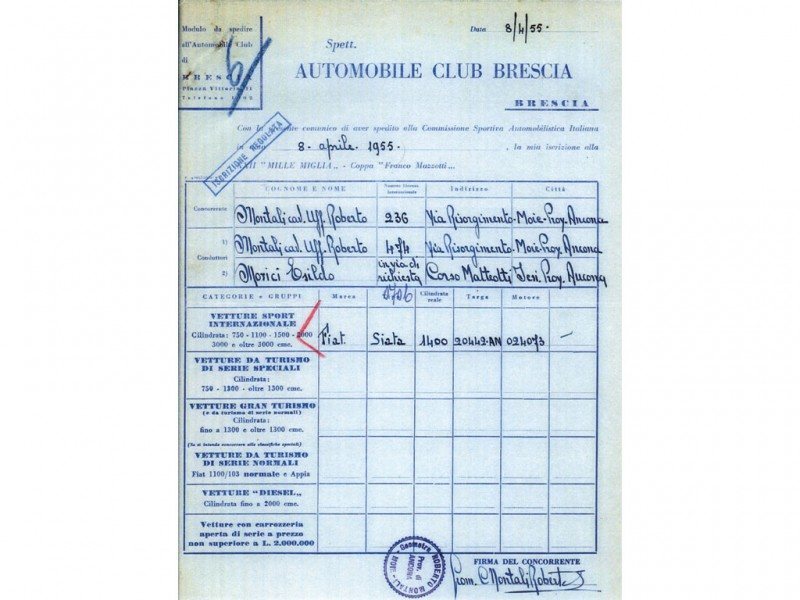 Modulo da spedire
all'Automobile Club
di
BRESCIA
Piazza Vittoria, 11
6
Data 8/4/55-
Spett.
AUTOMOBILE CLUB BRESCIA
BRESCIA
Con la comunico di aver spedito alla Commissione Sportiva Automobilistica Italiana
8 - aprile - 1955 - , la mia iscrizione alla
"MILLE MIGLIA" - Coppa "Franco Mazzotti"
ISCRIZIONE REGOLATA
COGNOME E NOME Numero licenza internazionale Indirizzo Città
Concorrente Montali cav. Uff. Roberto 236 Via Risorgimento - Moie - Prov. Ancona
Conduttori 1) Montali cav. Uff. Roberto 474 Via Risorgimento - Moie - Prov. Ancona
2) Morici Esildo in via di richiesta Corso Matteotti Jesi Prov. Ancona
CATEGORIE e GRUPPI Marca Cilindrata reale Targa Motore
VETTURE SPORT
INTERNAZIONALE
Cilindrata: 750 - 1100 - 1500 - 2000
3000 e oltre 3000 cmc.
Fiat Siata 1400 20442-AN 024073 -
VETTURE DA TURISMO
DI SERIE SPECIALI
Cilindrata:
750 - 1300 - oltre 1300 cmc.
VETTURE GRAN TURISMO
(e da turismo di serie normali)
Cilindrata:
fino a 1300 e oltre 1300 cmc.
(Se si intende concorrere alle classifiche speciali)
VETTURE DA TURISMO
DI SERIE NORMALI
Fiat 1100/103 normale e Appia
VETTURE "DIESEL"
Cilindrata fino a 2000 cmc.
Vetture con carrozzeria
aperta di serie a prezzo
non superiore a L. 2.000.000
Geometra ROBERTO MONTALI - MOIE
Prov. di
ANCONA
FIRMA DEL CONCORRENTE
Geom. Montali Roberto